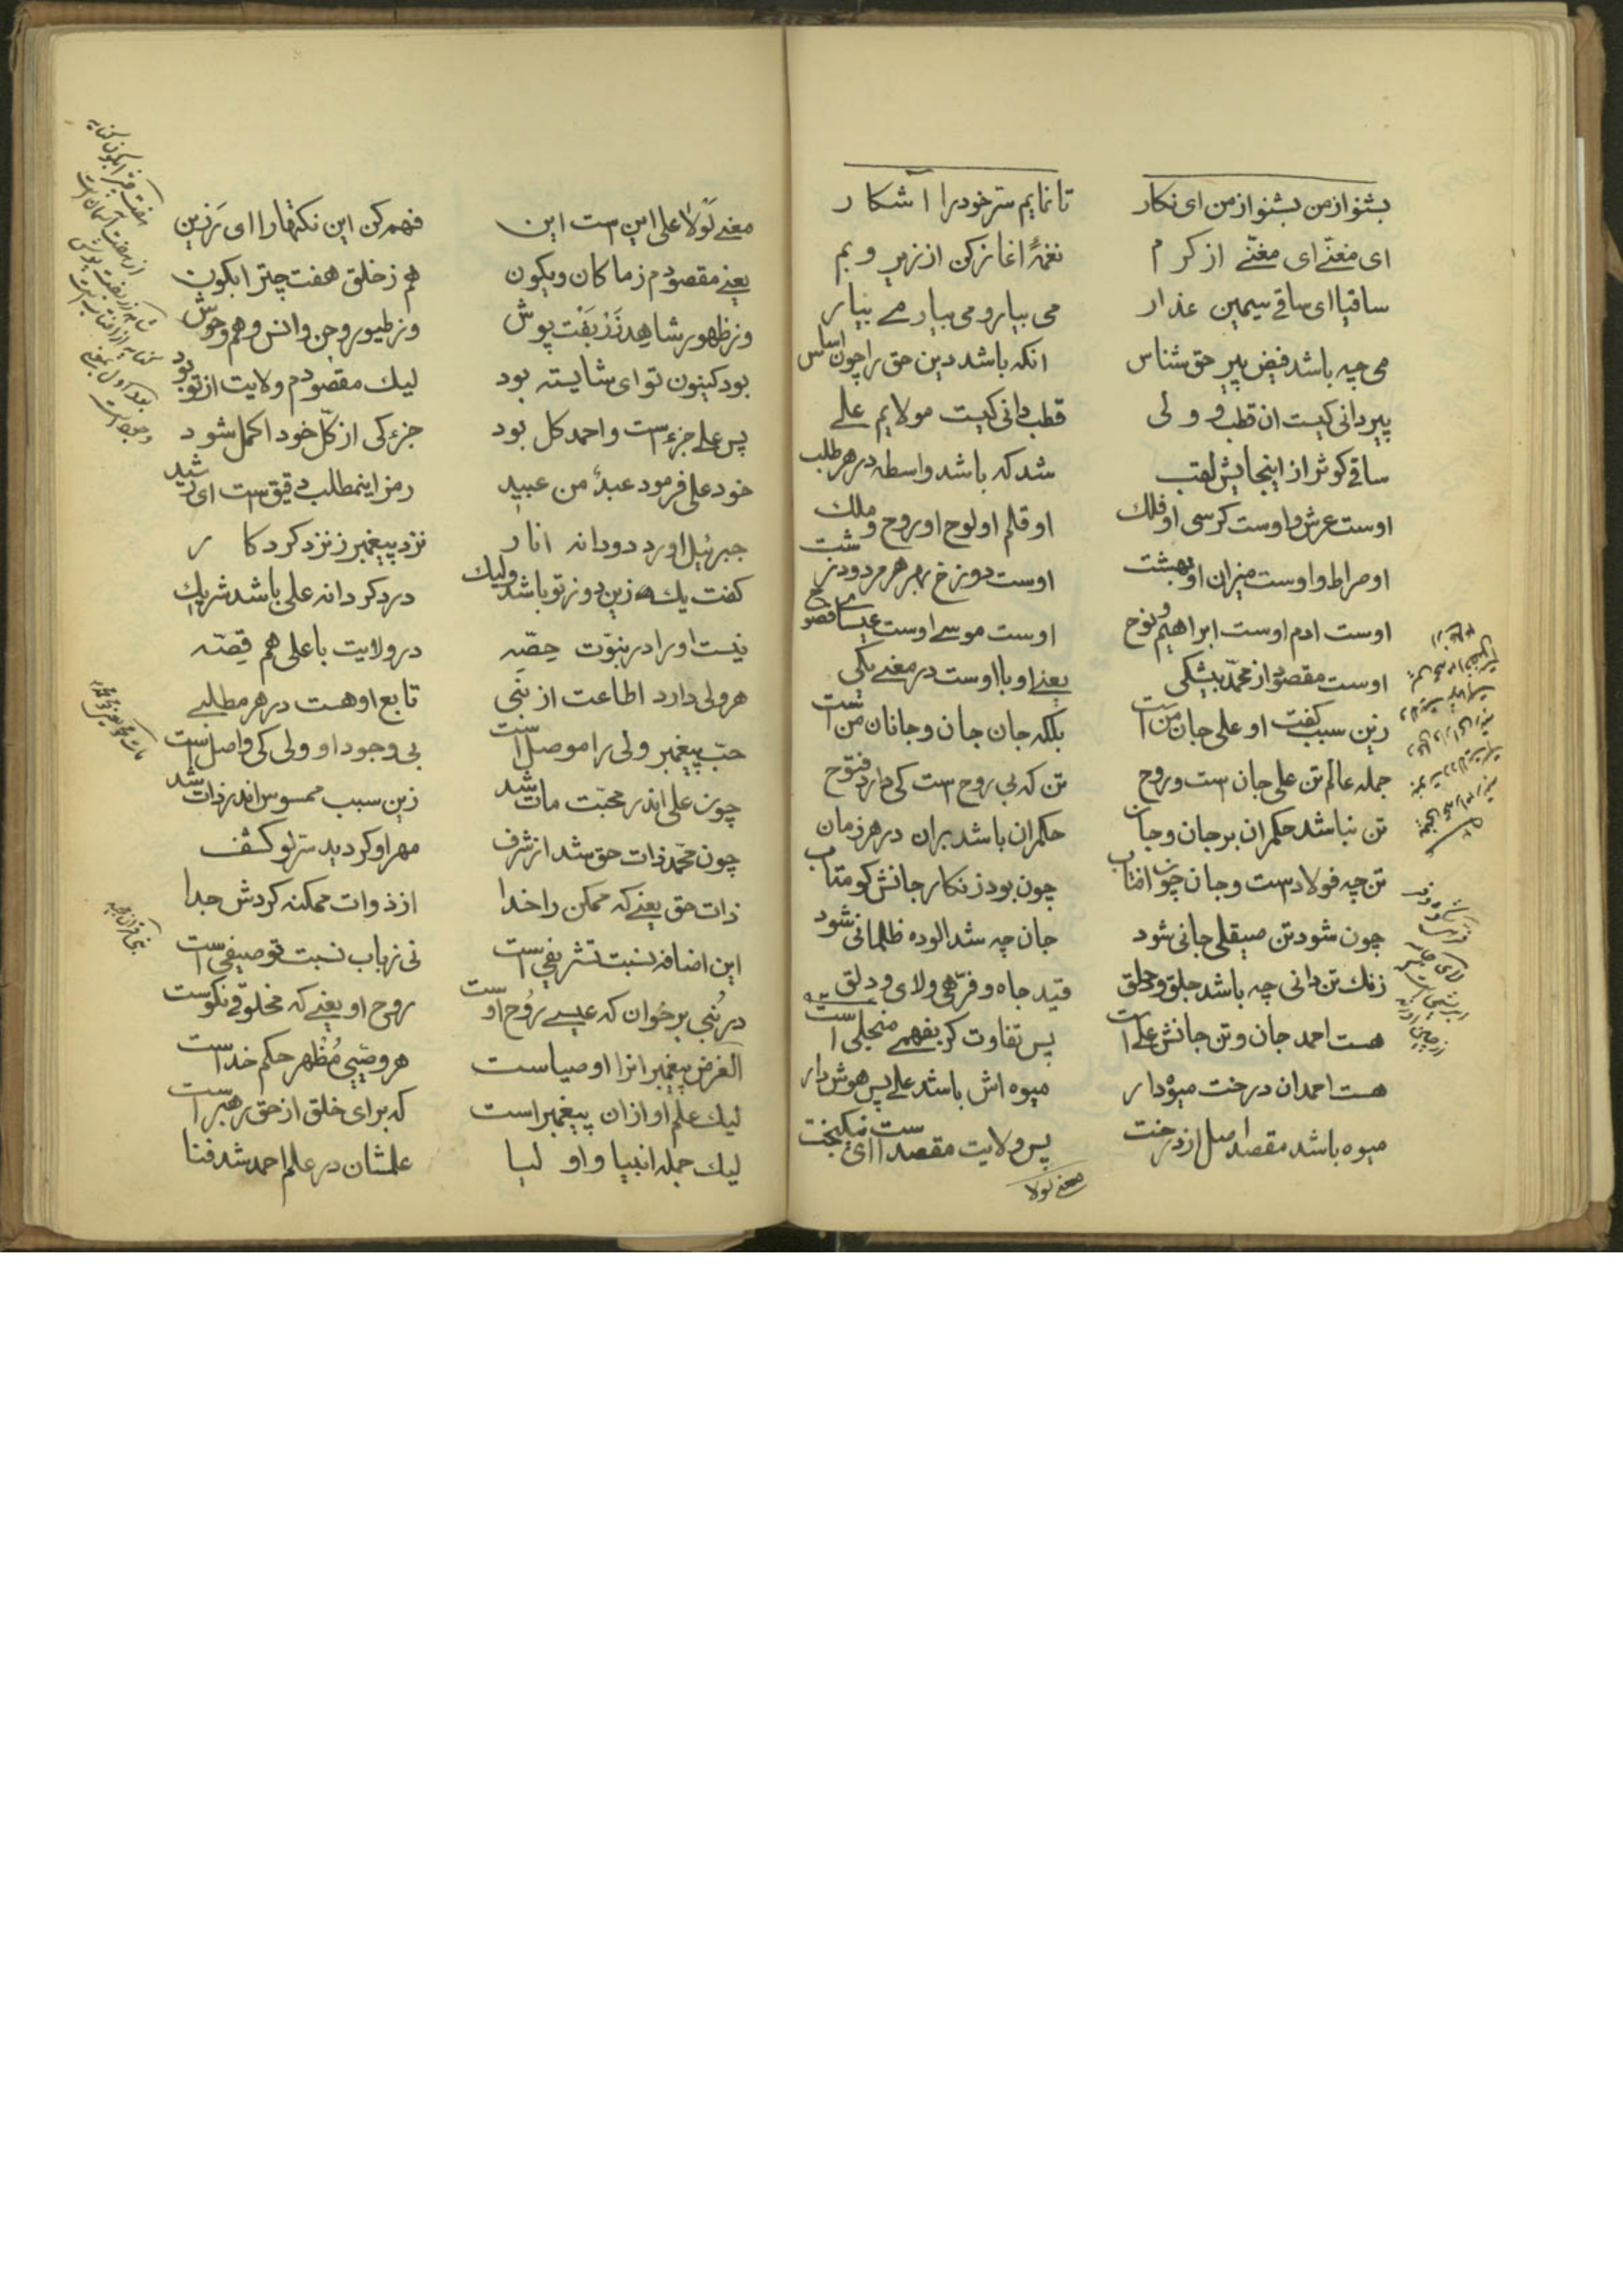 بشنو از من بشنو از من ای نکار تا نمایم سر خود را آشکار
ای مغنّے ای مغنّے از کرم نغمهٔ اغاز کن از زیر و بم
ساقیا ای ساقے سیمین عذار می بیار و می بیار مے بیار
می چه باشد فیض پیر حق شناس انکه باشد دین حق را چون اساس
پیر دانی کیست ان قطب و ولی قطب دانی کیست مولایم علے
ساقے کوثر از اینجایش لقب شد که باشد واسطه در هر طلب
اوست عرش و اوست کرسی او فلك او قلم او لوح او روح و ملك
او صراط و اوست میزان او بهشت اوست دوزخ بهر هر مردود زشت
اوست ادم اوست ابراهیم و نوح اوست موسے اوست عیسے
اوست مقصود از محمّد بیشکی یعنے او با اوست در معنے یکی
زین سبب گفت او علی جان من است بلکه جان جان و جانان من است
جمله عالم تن علی جان ست و روح تن که بی روح ست کی دارد فتوح
تن نباشد حکمران بر جان و جان حکمران باشد بران در هر زمان
تن چه فولادست و جان چون افتاب چون بود زنکار جانش کو متاب
چون شود تن صیقلی جانی شود جان چه شد الوده ظلمانی شود
زنك تن دانی چه باشد جلق و حلق قید جاه و فرّهی و لای و دلق
هست احمد جان و تن جانش علے است پس تفاوت کر بفهمے منجلی است
هست احمد ان درخت میوه دار میوه اش باشد علے پس هوش دار
میوه باشد مقصد اصل از درخت پس ولایت مقصد است ای نیکبخت
معنے لولا
معنے لولا علی این ست این فهم کن این نکتها را ای رزین
یعنے مقصودم ز ما کان و یکون هم ز خلق هفت چتر ابکون
وز ظهور شاهد زربفت پوش وز طیور و جن و انس و هم وحوش
بود کینون تو ای شایسته بود لیك مقصودم ولایت از تو بود
پس علے جزء ست و احمد کل بود جزء کی از کلّ خود اکمل شود
خود علی فرمود عبدٌ من عبید رمز اینمطلب دقیق ست ای رشید
جبرئیل اورد دو دانه انار نزد پیغمبر ز نزد کردکار
کفت یك زین دو ز تو باشد ولیك در دکر دانه علی باشد شریك
نیست او را در نبوّت حصّه در ولایت با علی هم قصّه
هر ولی دارد اطاعت از نبی تابع او هست در هر مطلبے
حبّ پیغمبر ولی را موصل است بی وجود او ولی کی واصل ست
چون علی اندر محبّت مات شد زین سبب ممسوس اندر ذات شد
چون محمّد ذات حق شد از شرف مهر او کردید سرّ لو کشف
ذات حق یعنے که ممکن را خدا از ذوات ممکنه کردش جدا
این اضافه نسبت تشریفی ست نی ز باب نسبت توصیفی ست
در نُبی بر خوان که عیسے رُوح اوست روح او یعنے که مخلوقے نکوست
الغرض پیغمبرانرا اوصیاست هر وصیّی مُظهر حکم خداست
لیك علم او از ان پیغمبر است که برای خلق از حق رهبر است
لیك جمله انبیا و اولیا علمشان در علم احمد شد فنا